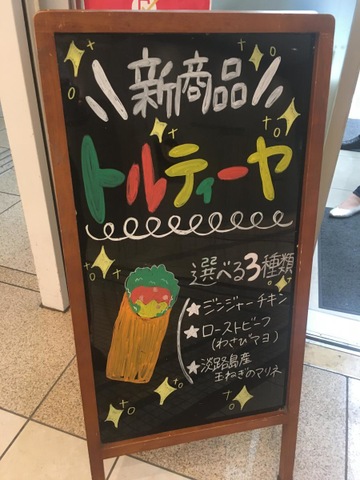 新商品
トルティーヤ
選べる3種類
★ジンジャーチキン
★ローストビーフ
(わさびマヨ)
★淡路島産
玉ねぎのマリネ